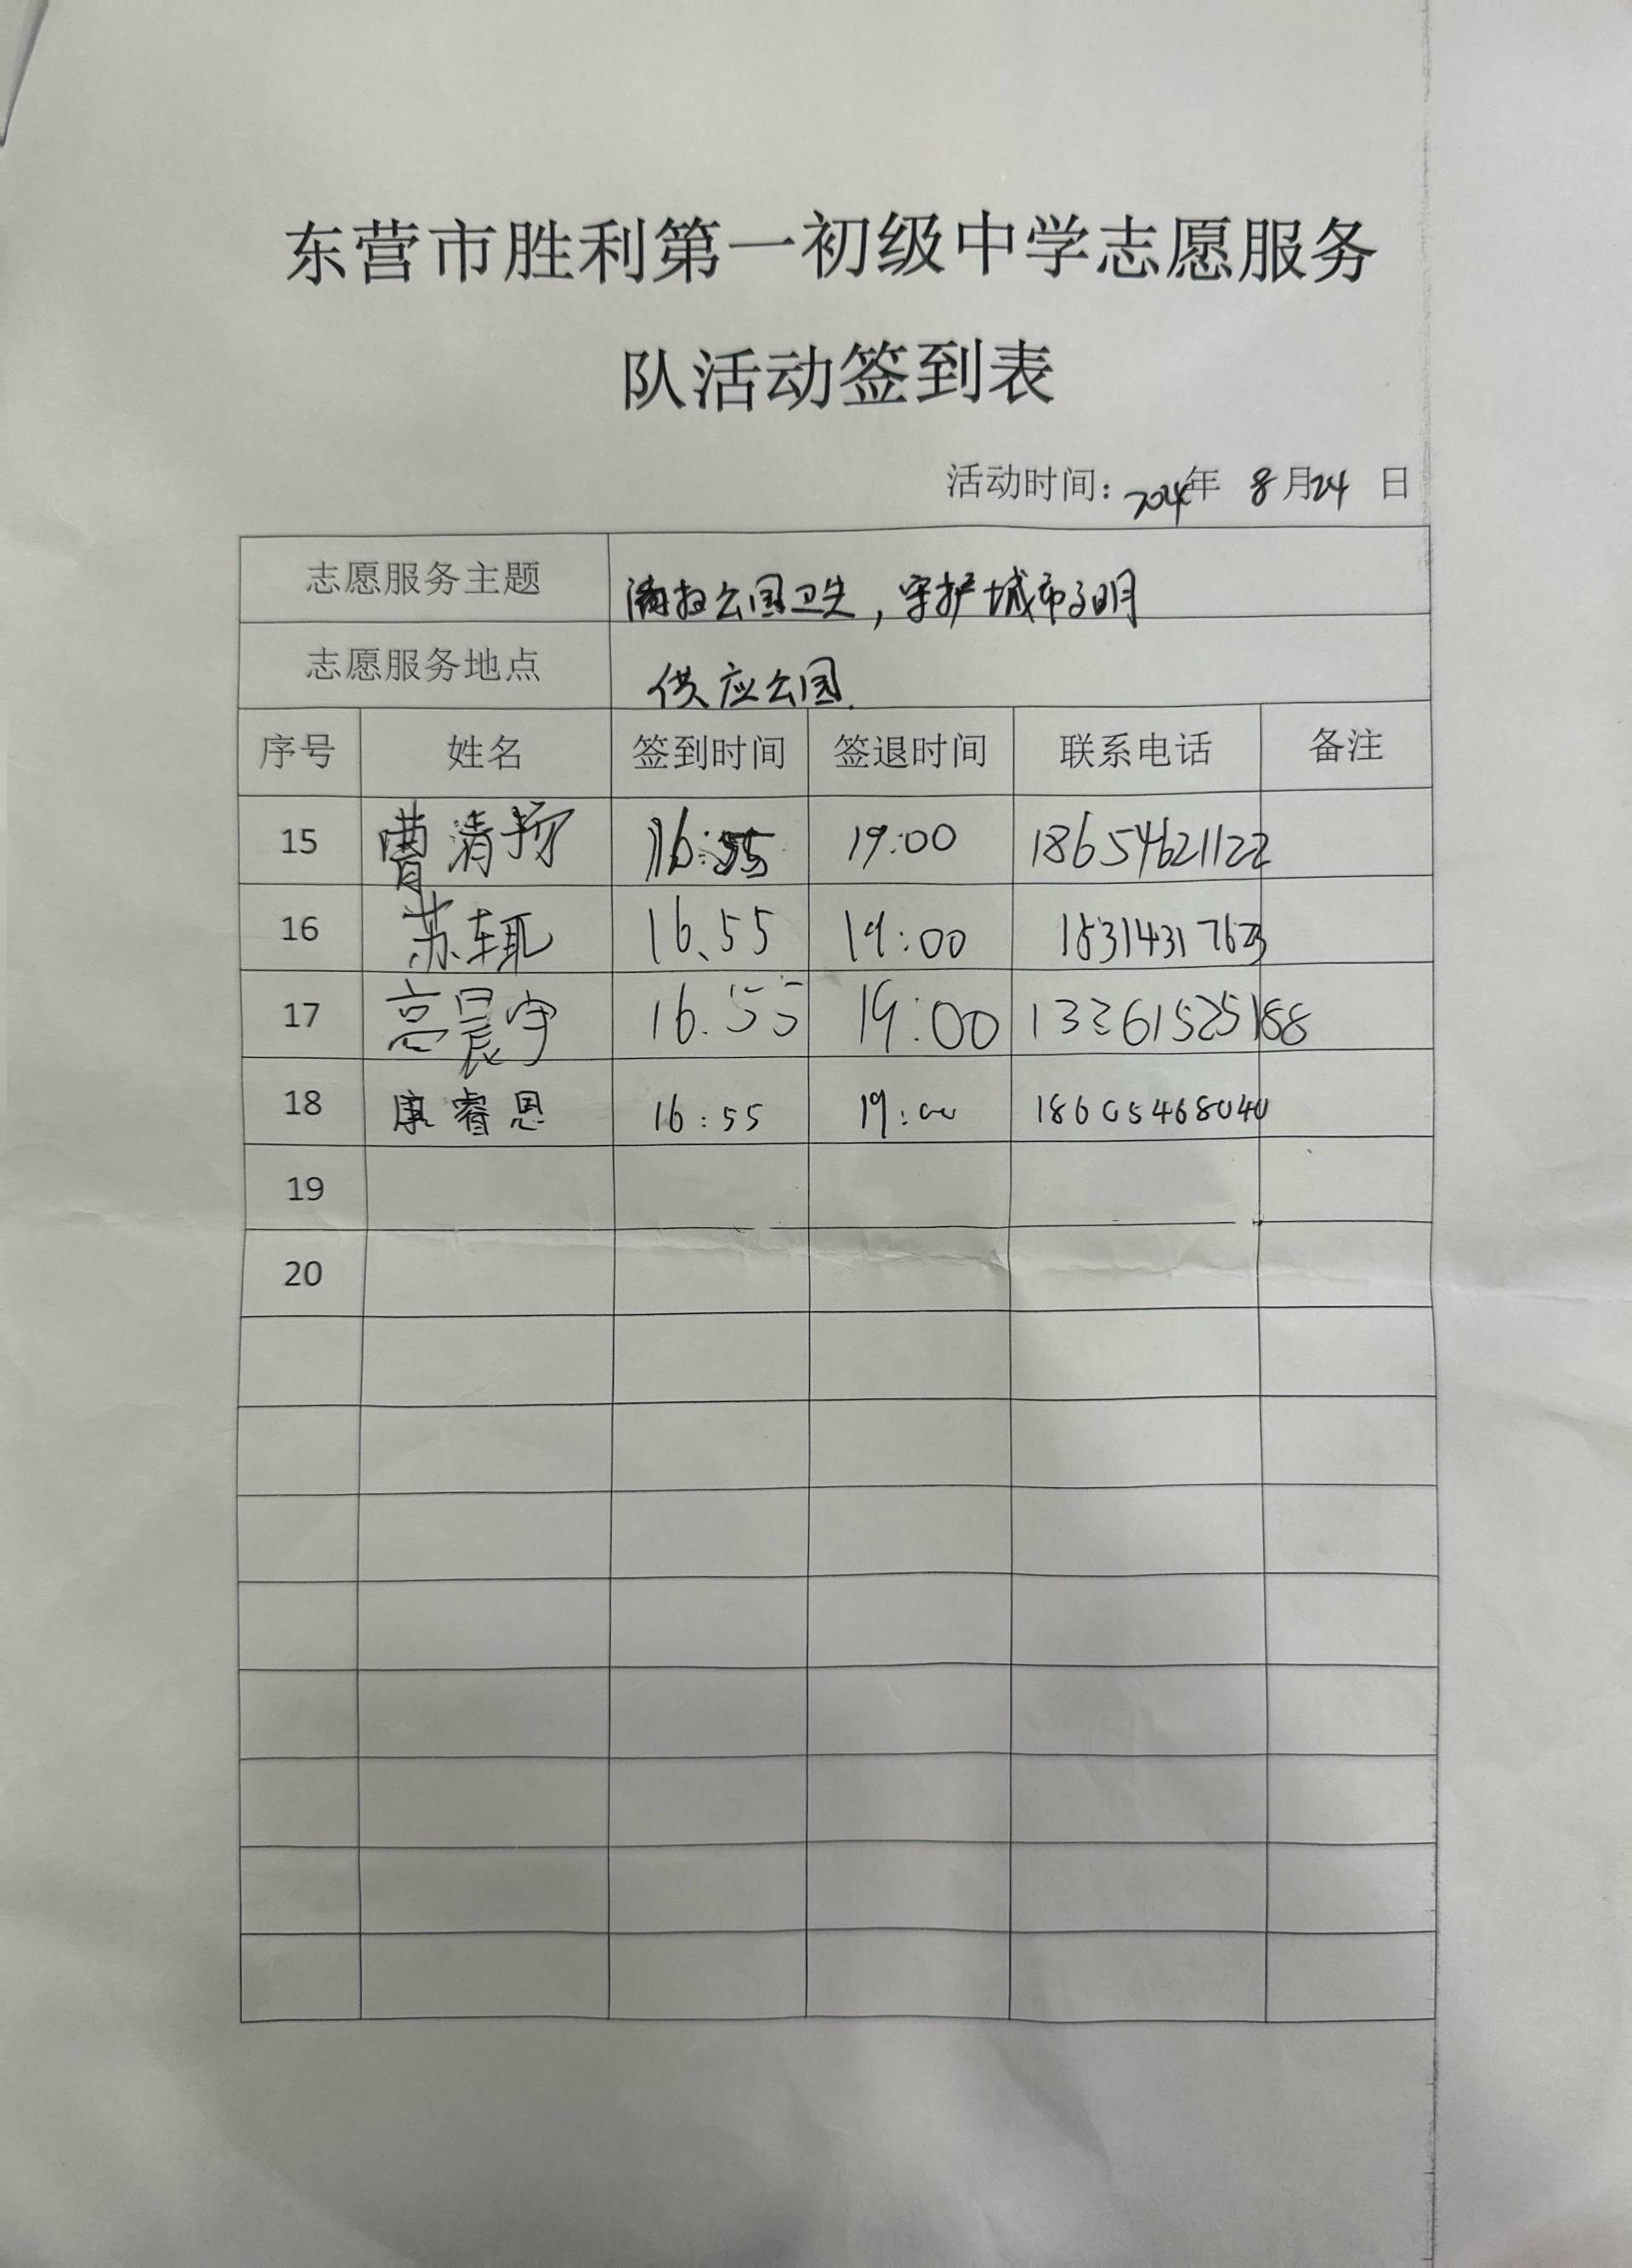 东营市胜利第一初级中学志愿服务
队活动签到表
活动时间：2024年 8月24 日
志愿服务主题 清扫公园卫生，守护城市文明
志愿服务地点 供应公园
序号 姓名 签到时间 签退时间 联系电话 备注
15 曹清扬 16:55 19:00 18654621122
16 苏辄 16.55 19:00 18314317623
17 高晨宇 16.55 19:00 13361525188
18 康睿恩 16:55 19:00 18605468040
19
20